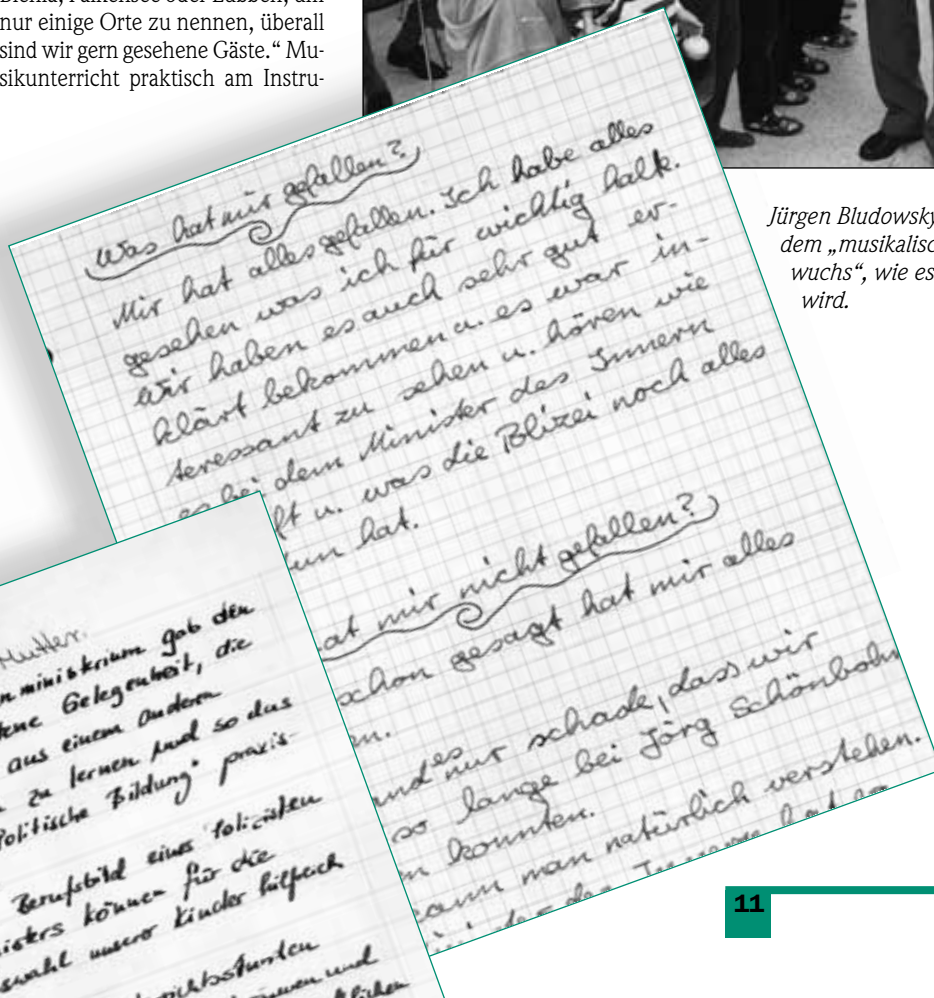 nur einige Orte zu nennen, überall
sind wir gern gesehene Gäste.“ Mu-
sikunterricht praktisch am Instru-
Jürgen Bludowsky
dem „musikalisc
wuchs“, wie es
wird.
Was hat mir gefallen?
Mir hat alles gefallen. Ich habe alles
gesehen was ich für wichtig halte.
Wir haben es auch sehr gut er-
klärt bekommen u. es war in-
teressant zu sehen u. hören wie
es bei dem Minister des Innern
ft u. was die Polizei noch alles
un hat.
at mir nicht gefallen?
schon gesagt hat mir alles
en.
andes nur schade, dass wir
so lange bei Jörg Schönbohm
n konnten.
kann man natürlich verstehen.
Mutter.
nministerium gab den
tene Gelegenheit, die
aus einem anderen
n zu lernen und so das
Politische Bildung" praxis-
Berufsbild eines Polizisten
nisters können für die
swahl unserer Kinder hilfreich
richtsstunden
und
tlichen
11